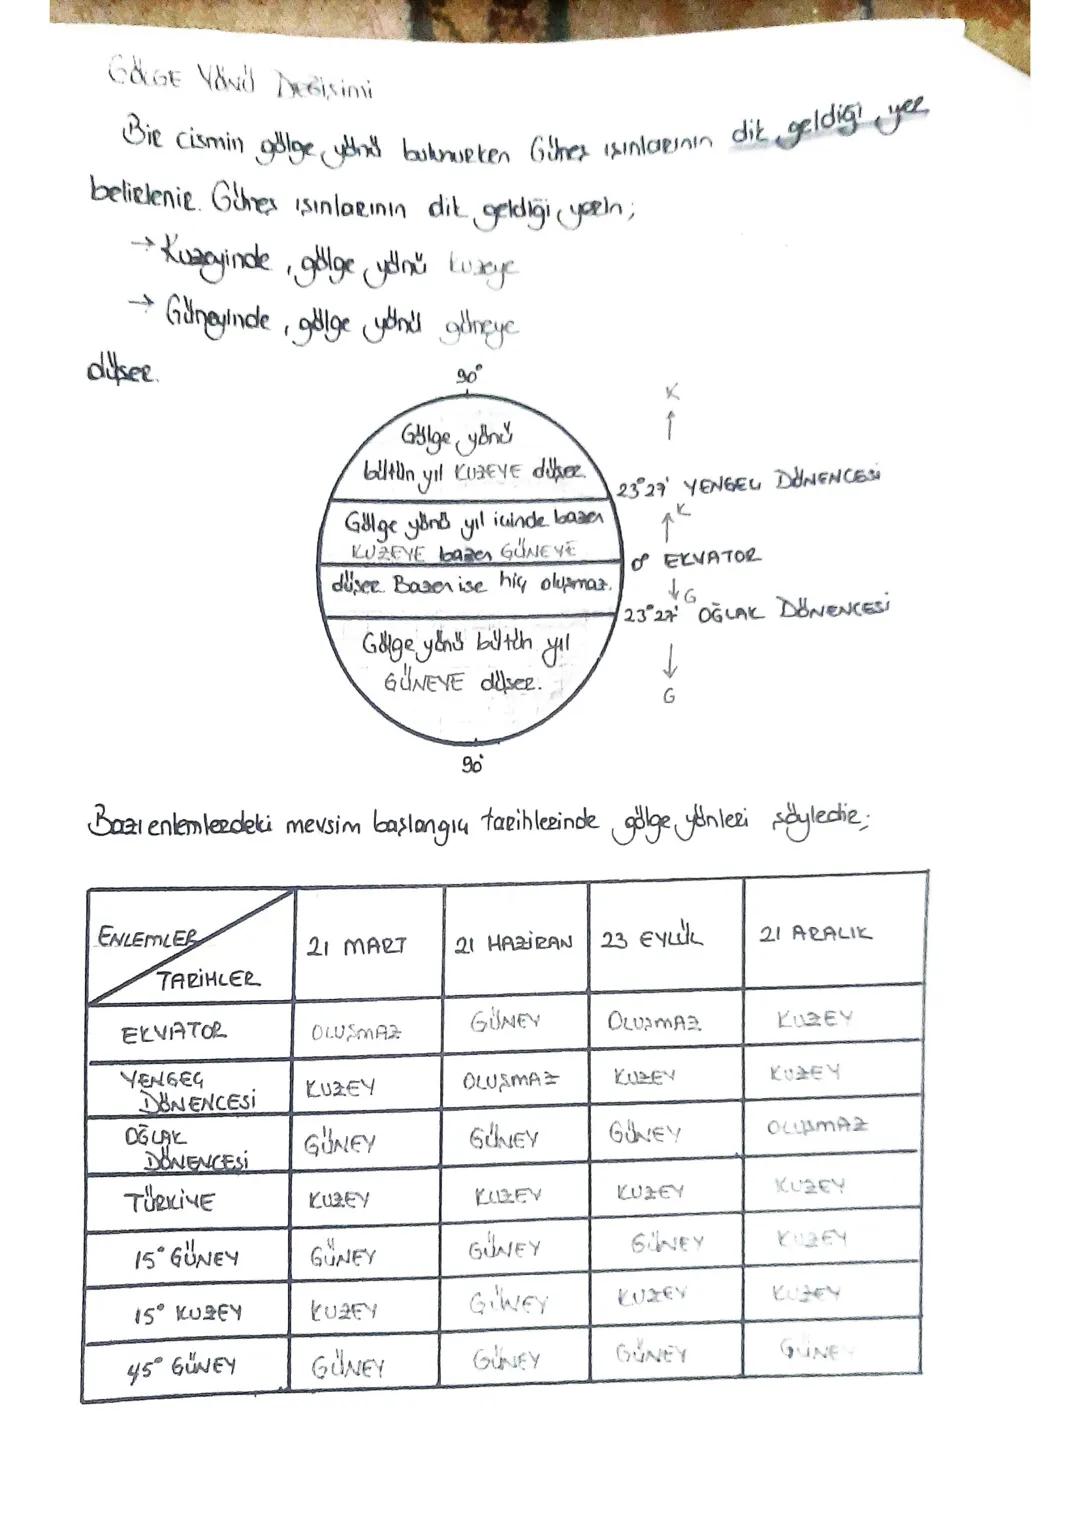 GÖLGE YÖNÜ DEĞİŞİMİ
Bir cismin gölge yönü bulunurken Güneş ışınlarının dik geldiği yer
belirlenir. Güneş ışınlarının dik geldiği yerin;
→ Kuzeyinde, gölge yönü kuzeye
→ Güneyinde, gölge yönü güneye
düşer.
90°
K
↑
Gölge yönü
bütün yıl KUZEYE düşer.
23°27' YENGEÇ DÖNENCESİ
Gölge yönü yıl içinde bazen
↑K
KUZEYE bazen GÜNEYE
0° EKVATOR
düşer. Bazen ise hiç oluşmaz.
↓G
23°27' OĞLAK DÖNENCESİ
Gölge yönü bütün yıl
GÜNEYE düşer.
↓
G
90°
Bazı enlemlerdeki mevsim başlangıç tarihlerinde gölge yönleri şöyledir;
ENLEMLER TARİHLER 21 MART 21 HAZİRAN 23 EYLÜL 21 ARALIK
EKVATOR OLUŞMAZ GÜNEY OLUŞMAZ KUZEY
YENGEÇ DÖNENCESİ KUZEY OLUŞMAZ KUZEY KUZEY
OĞLAK DÖNENCESİ GÜNEY GÜNEY GÜNEY OLUŞMAZ
TÜRKİYE KUZEY KUZEY KUZEY KUZEY
15° GÜNEY GÜNEY GÜNEY GÜNEY KUZEY
15° KUZEY KUZEY GÜNEY KUZEY KUZEY
45° GÜNEY GÜNEY GÜNEY GÜNEY GÜNEY